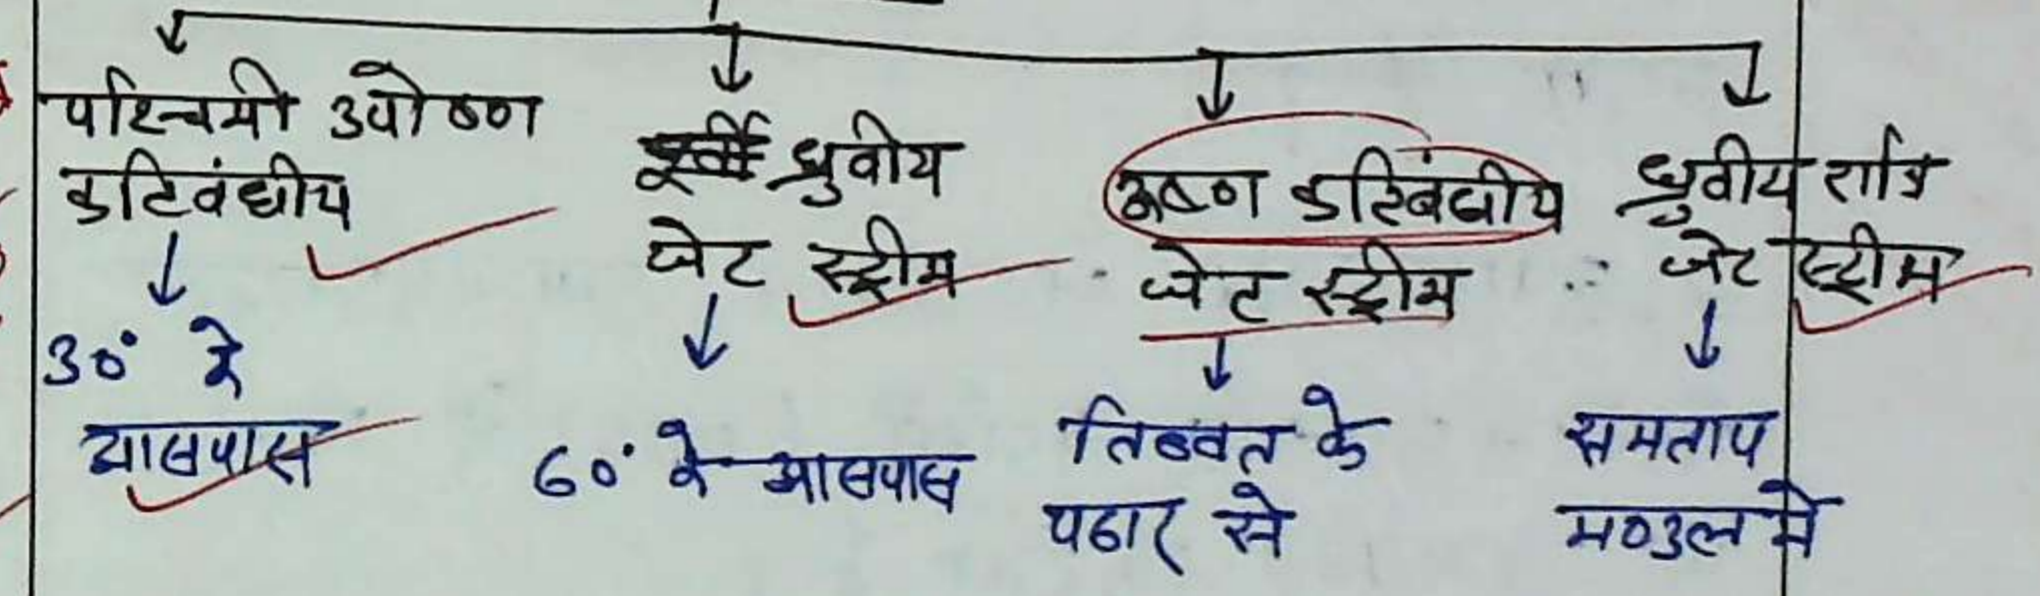 पश्चिमी उपोष्ण
कटिबंधीय
30° के
आसपास
ध्रुवीय
जेट स्ट्रीम
60° के आसपास
ऊष्ण कटिबंधीय
जेट स्ट्रीम
तिब्बत के
पठार से
ध्रुवीय रात्रि
जेट स्ट्रीम
समताप
मण्डल में